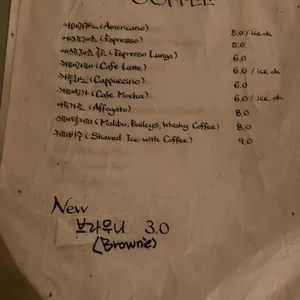 COFFEE
(Americano) 5.0 / ice ok
(Espresso) 5.0
(Espresso Lungo) 6.0
(Cafe Latte) 6.0 / ice ok
(Cappuccino) 6.0
(Cafe Mocha) 6.0 / ice ok
(Affogato) 8.0
(Malibu, Baileys, Whisky Coffee) 8.0
(Shaved Ice with Coffee) 9.0
New
브라우니 3.0
(Brownie)